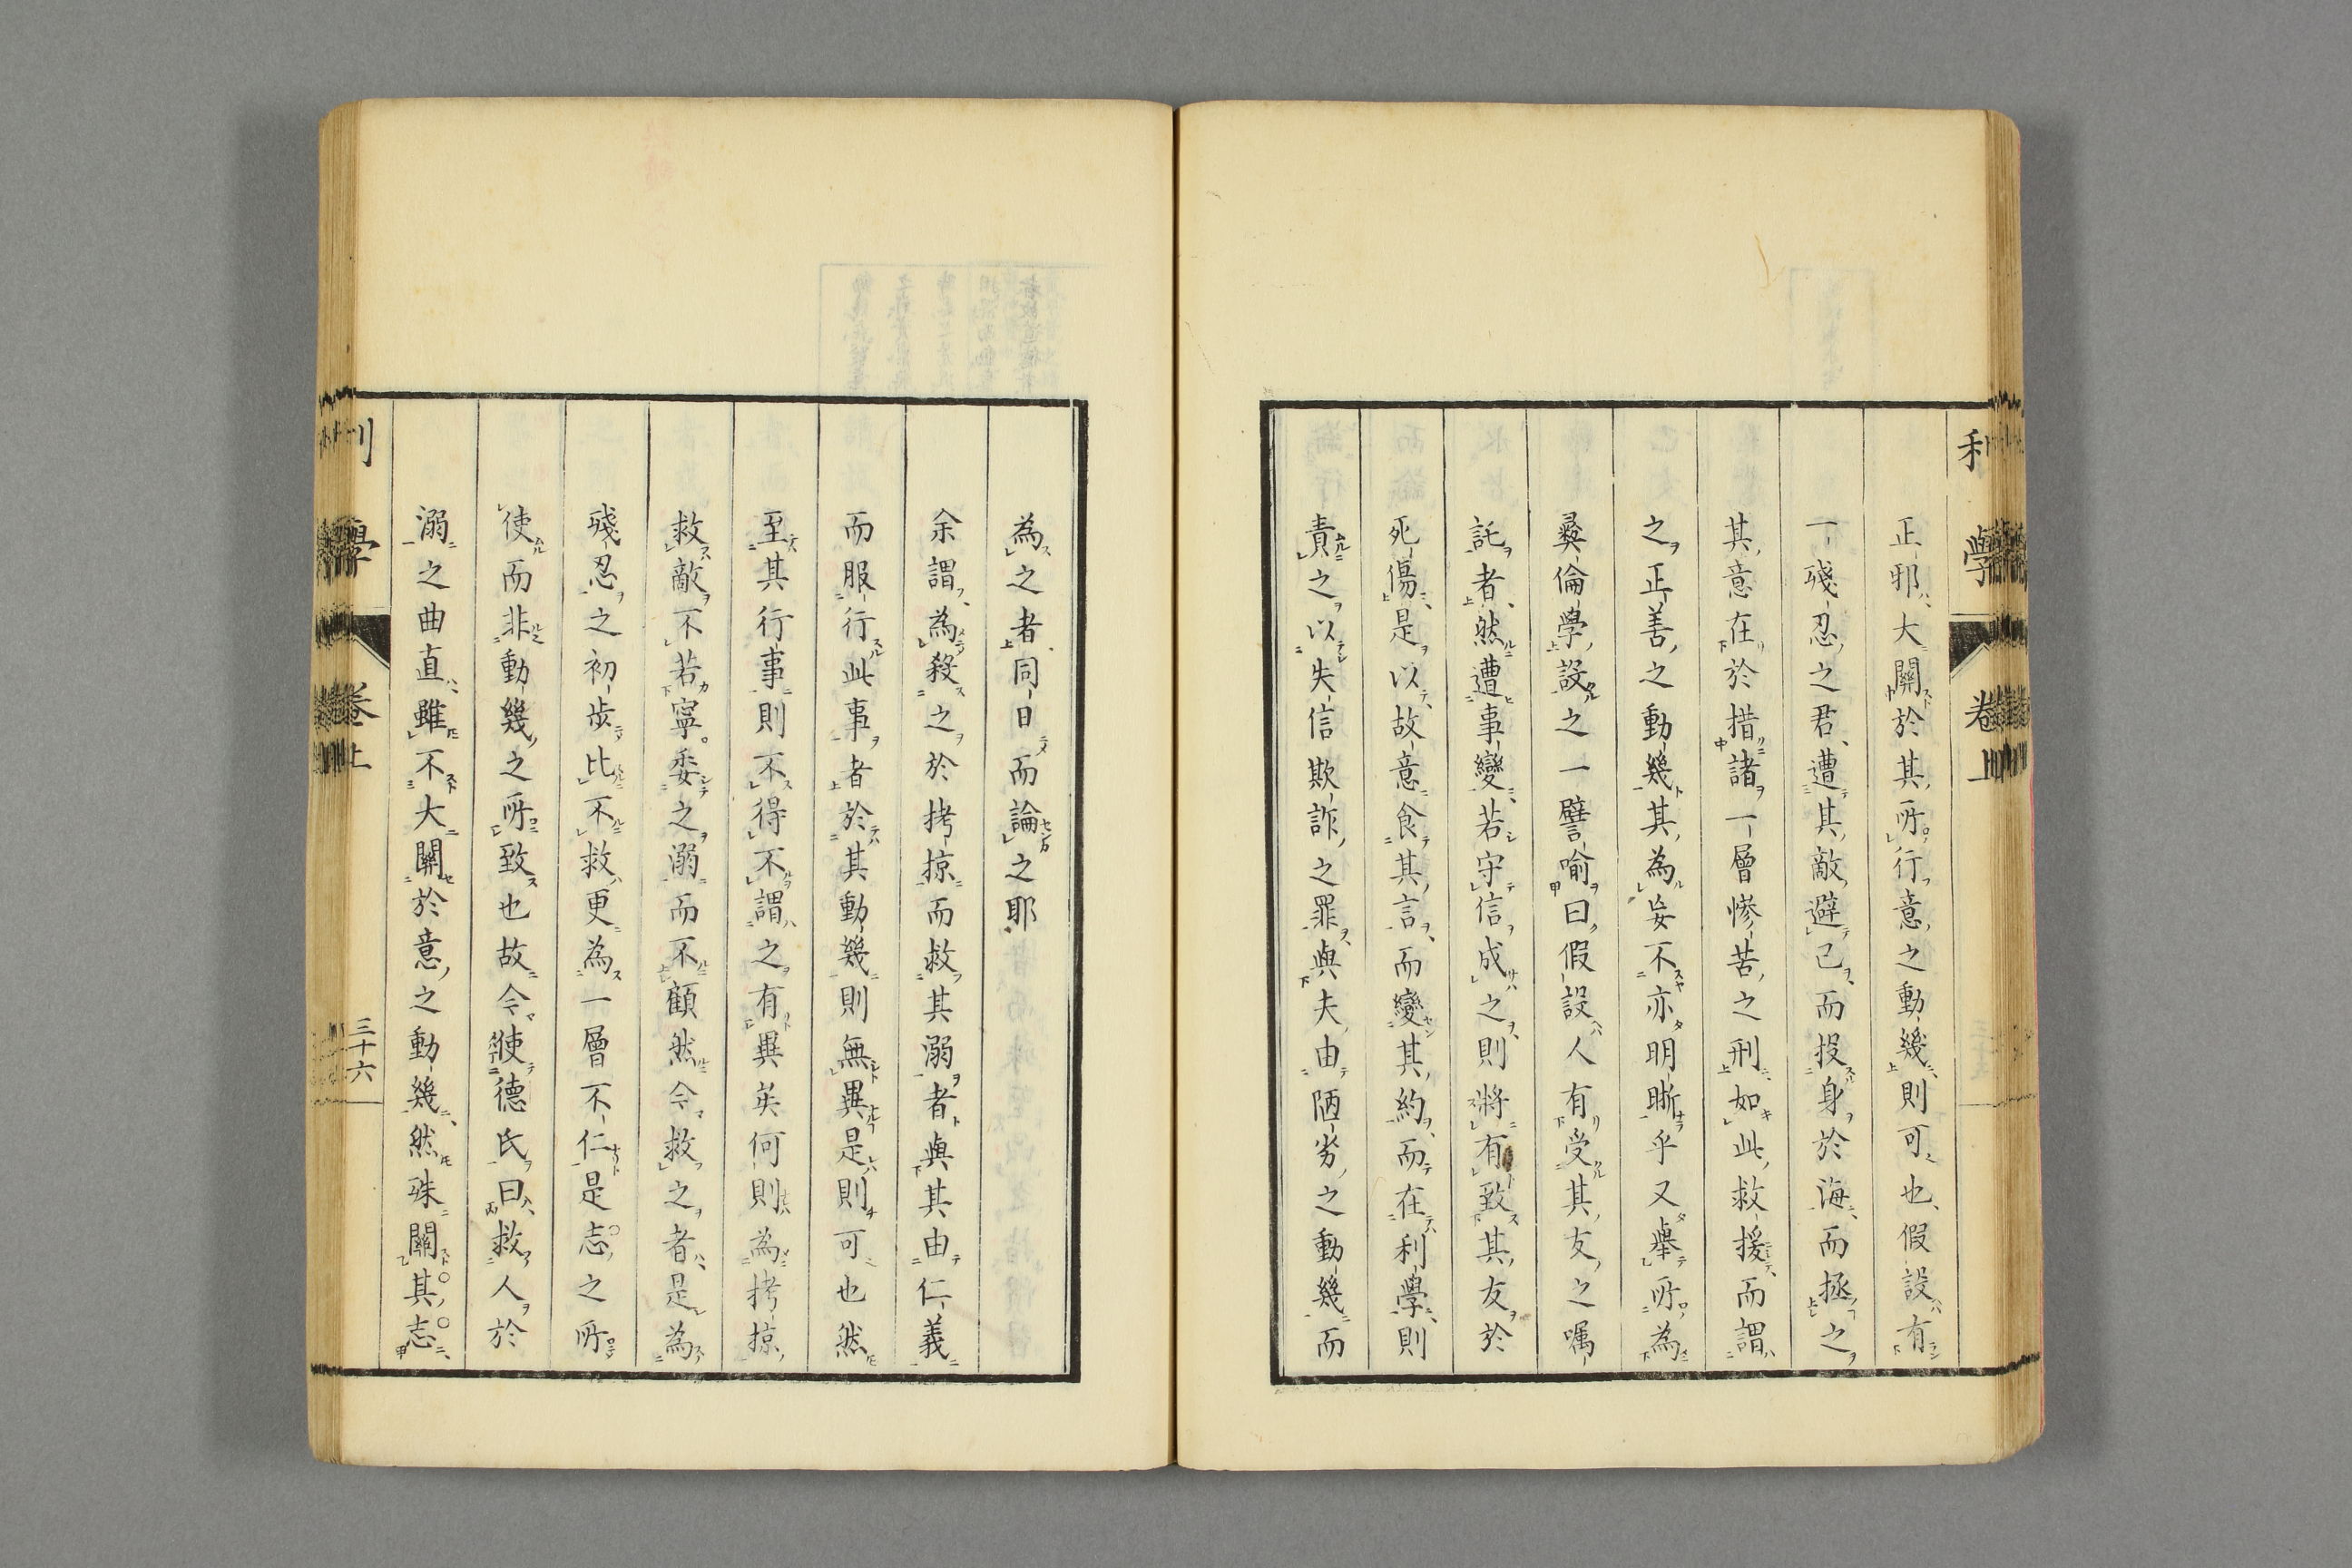 利學 卷上
正邪大關於其所行意之動幾則可也假設有
一殘忍之君遭其敵避己而投身於海而拯之
其意在於措諸一層慘苦之刑如此救援而謂
之正善之動幾其為妄不亦明晰乎又舉所為
彜倫學設之一譬喻曰假設人有受其友之囑
託者然遭事變若守信成之則將有致其友於
死傷是以故意食其言而變其約而在利學則
責之以失信欺詐之罪與夫由陋劣之動幾而
為之者同日而論之耶
余謂為殺之於拷掠而救其溺者與其由仁義
而服行此事者於其動幾則無異是則可也然
至其行事則不得不謂之有異矣何則為拷掠
救敵不若寧委之溺而不顧然今救之者是為
殘忍之初步比不救更為一層不仁是志之所
使而非動幾之所致也故令使德氏曰救人於
溺之曲直雖不大關於意之動幾然殊關其志
利學 卷上 三十六